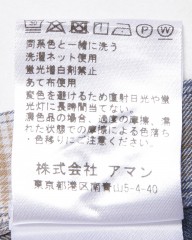 同系色と一緒に洗う
洗濯ネット使用
蛍光増白剤禁止
あて布使用
変色を避けるため直射日光や蛍
光灯に長時間当てない。
濃色品の場合、過度の摩擦、濡
れた状態での摩擦による色落ち
・色移りにご注意ください。
株式会社 アマン
東京都港区南青山5-4-40